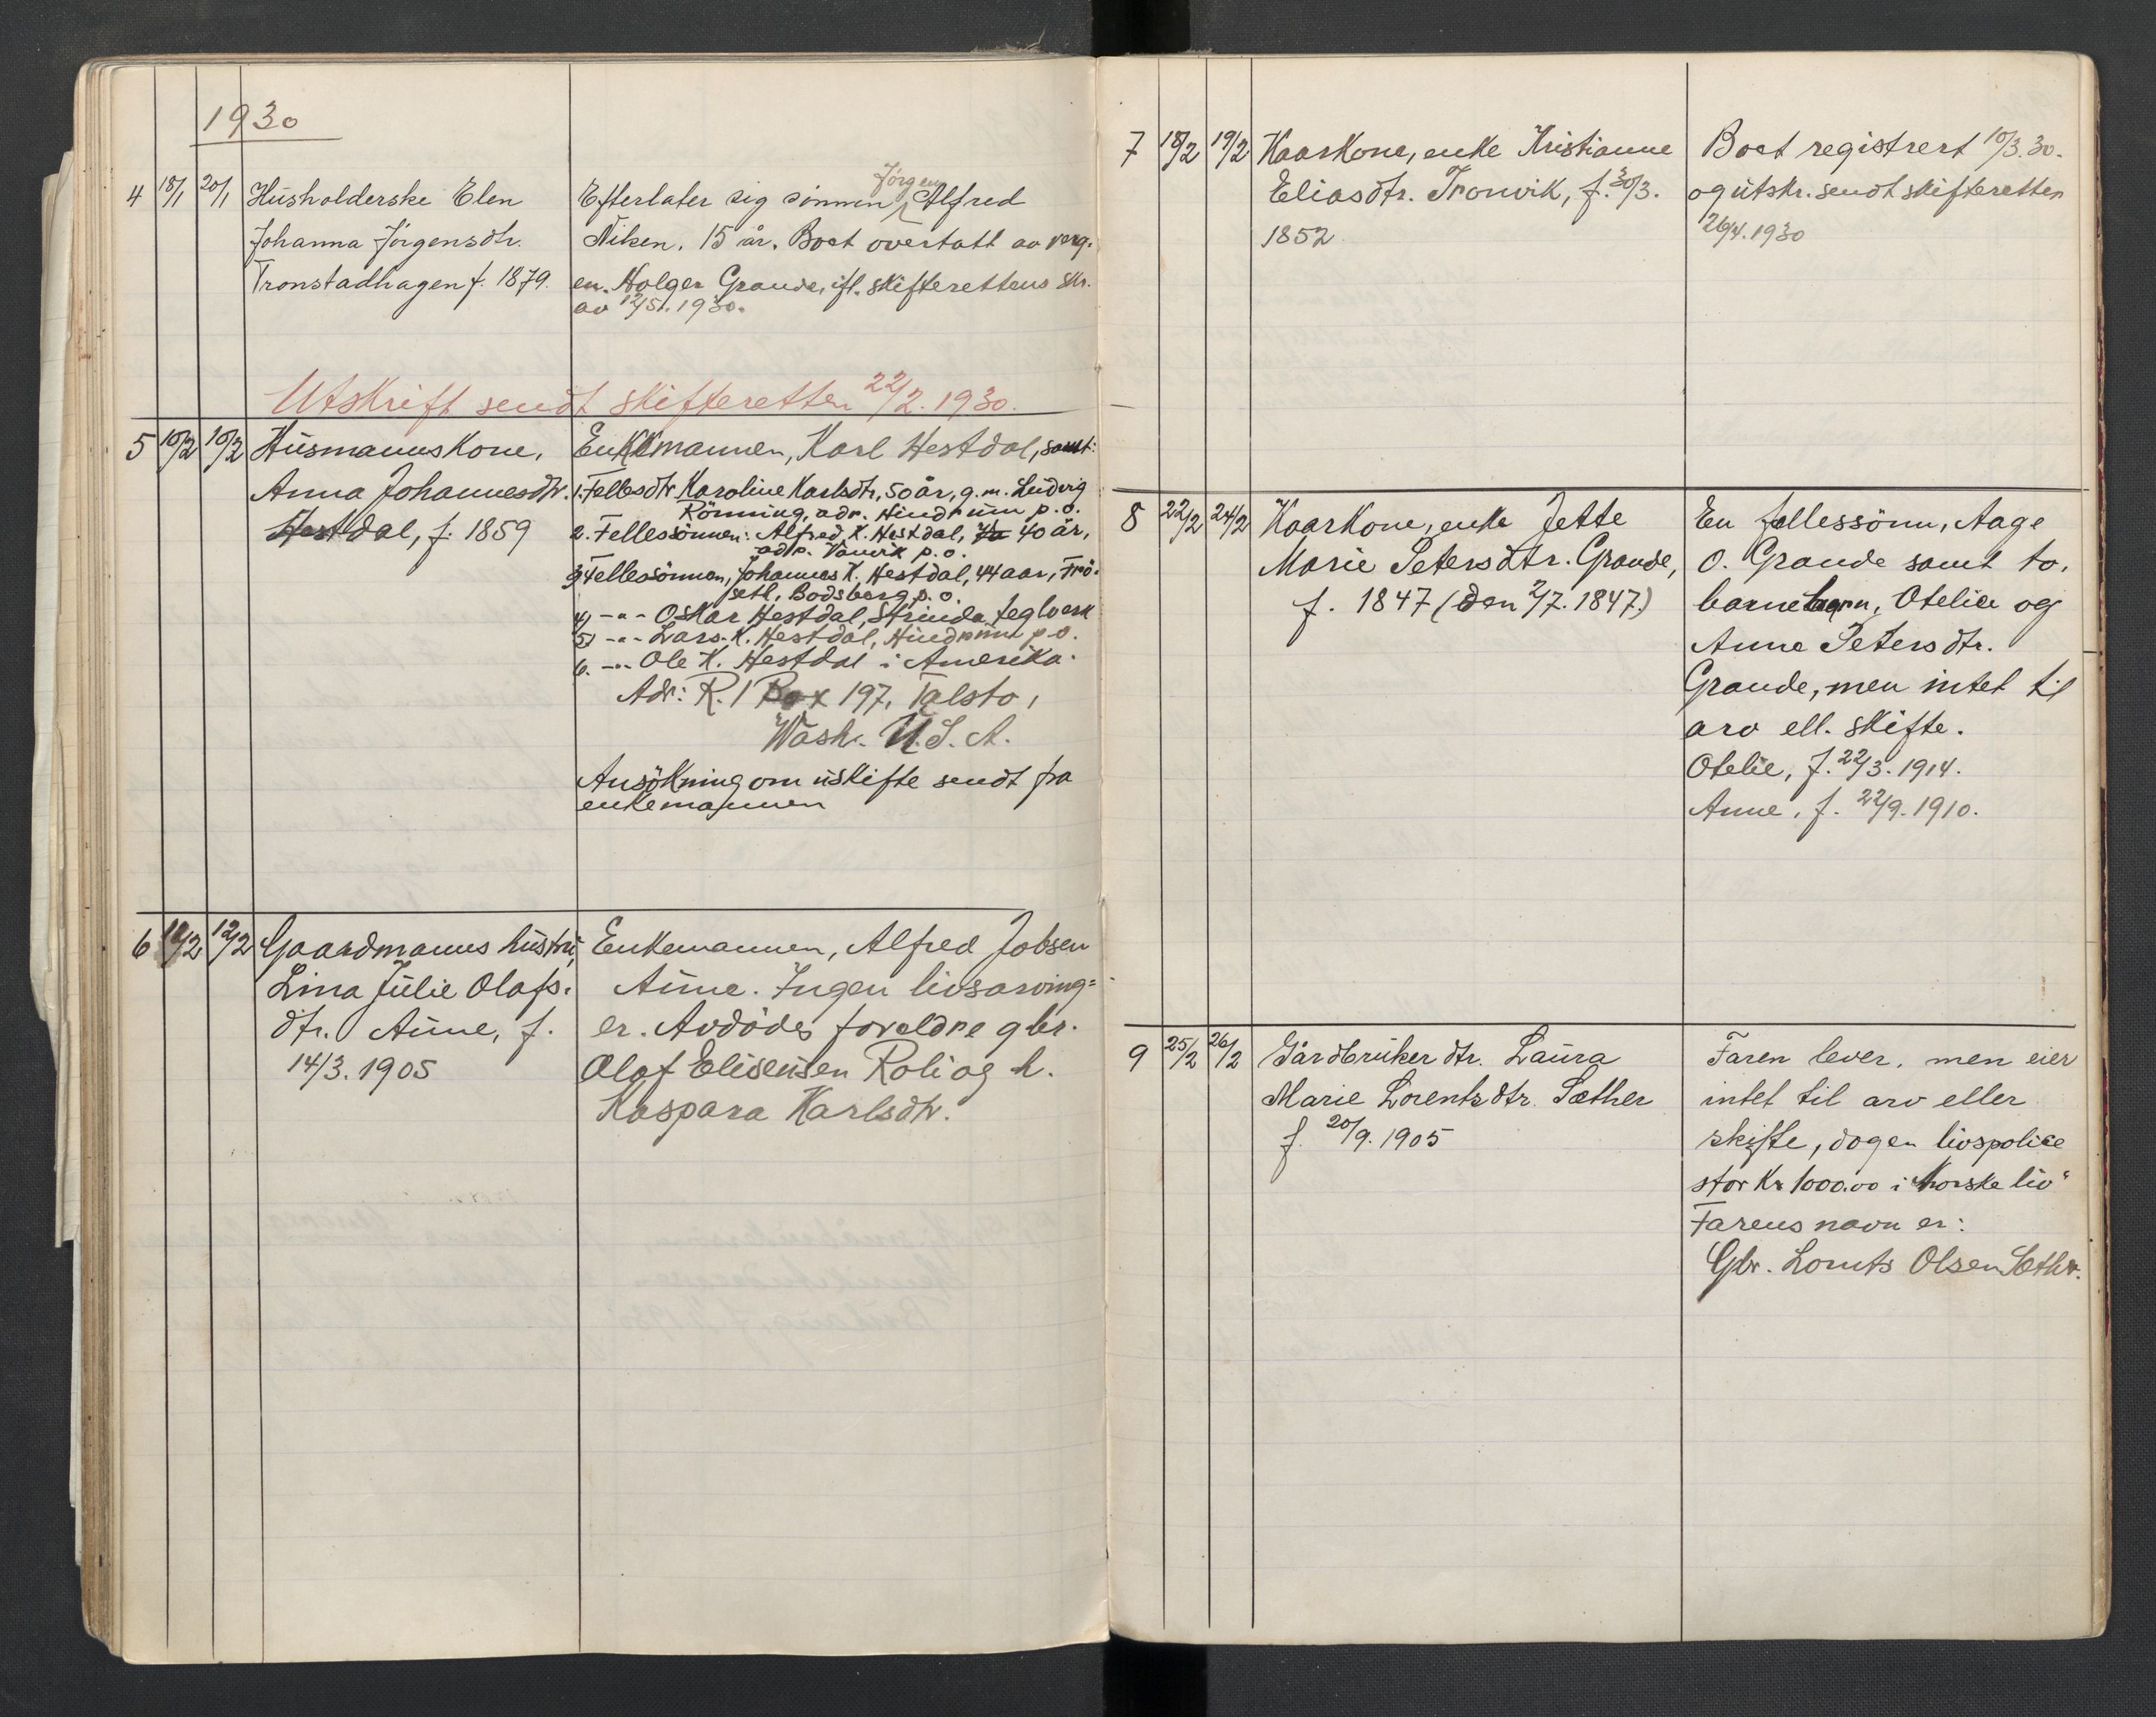 1930
4 18/1 20/1 Husholderske Elen
Johanna Jörgensdtr.
Tronstadhagen f. 1879.
Jörgen
Efterlater sig sönnen Alfred
Niken, 15 år. Boet overtatt av verg-
en. Holger Grande, ifl. skifterettens skr.
av 12/5 1930.
Utskrift sendt skifteretten 22/2. 1930.
5 10/2 10/2 Husmannskone,
Anna Johannesdtr.
Hestdal, f. 1859
Enkemannen, Karl Hestdal, samt:
1. Fellesdtr Karoline Karlsdtr, 50 år, g.m. Ludvig
Rönning, adr. Hindrum p.o.
2. Fellessönnen: Alfred K. Hestdal, 40 år,
adr. Vanvik p.o.
3. Fellessönnen, Johannes K. Hestdal, 44 aar, Frö-
setl, Bodsberg p.o.
4) -"- Oskar Hestdal, Strinda teglverk
5) -"- Lars K. Hestdal, Hindrum p.o.
6. -"- Ole K. Hestdal i Amerika.
Adr: R. 1 Box 197, Talsto,
Wash. U.S.A.
Ansökning om uskifte sendt fra
enkemannen
6 11/2 12/2 Gaardmanns hustru,
Lina Julie Olafs-
dtr. Aune, f.
14/3. 1905
Enkemannen, Alfred Jobsen
Aune. Ingen livsarving=
er. Avdödes foreldre gbr.
Olaf Eliseusen Roli og h.
Kaspara Karlsdtr.
7 18/2 19/2 Kaarkone, enke Kristianne
Eliasdtr. Tronvik, f. 30/3.
1852
Boet registrert 10/3. 30.
og utskr. sendt skifteretten
26/4. 1930
8 22/2 24/2 Kaarkone, enke Jette
Marie Petersdtr. Grande,
f. 1847 (den 2/7. 1847.)
En fellessönn, Aage
O. Grande samt to,
barnebarn, Otelie og
Anne Petersdtr.
Grande, men intet til
arv ell. skifte.
Otelie, f. 22/3. 1914.
Anne, f. 22/9. 1910.
9 25/2 26/2 Gårdbruker dtr. Laura
Marie Lorentsdtr. Sæther
f. 20/9. 1905
Faren lever, men eier
intet til arv eller
skifte, dog en livspolice
stor Kr 1000.00 i "Norske liv"
Farens navn er:
Gbr. Lornts Olsen Sæther.